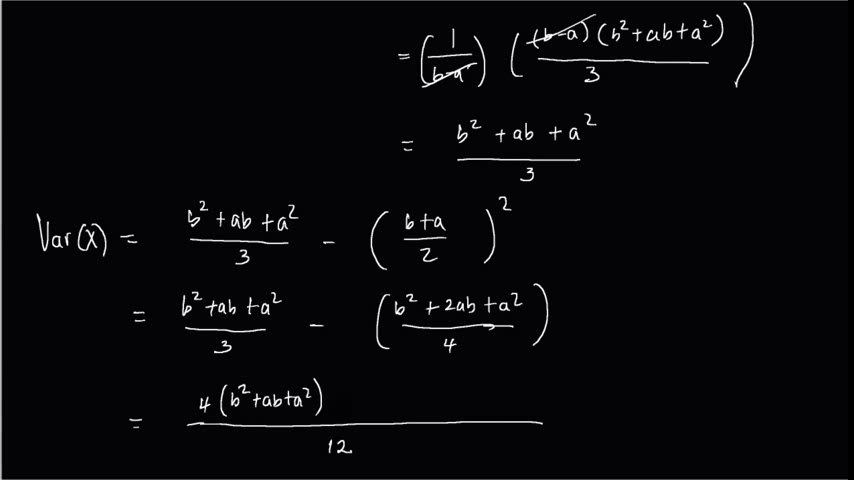 = (1/(b-a)) ((b-a)(b²+ab+a²)/3)
= (b² + ab + a²)/3
Var(X) = (b² + ab + a²)/3 - ((b+a)/2)²
= (b² + ab + a²)/3 - ((b² + 2ab + a²)/4)
= 4(b²+ab+a²)/12